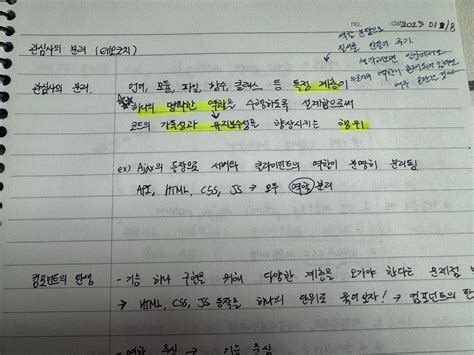 no.
date 2025 01 / 8
역할 분담으로
질서를 만들어 주기
관심사의 분리 (
관심사의 분리.
언어, 모듈, 파일, 함수, 클래스 등 특정 계층이
하나의 명확한 역할을 수행하도록 설계함으로써
코드의 가독성과 유지보수성을 향상시키는 행위.
ex) Ajax의 등장으로 서버와 클라이언트의 역할이 분명히 분리됨
API, HTML, CSS, JS → 모두 역할 분리
컴포넌트의 탄생
- 기능 하나 구현을 위해 다양한 계층을 오가야 한다는 문제점
→ HTML, CSS, JS 등을 하나의 단위로 묶어보자! → 컴포넌트의 탄
- 역할 중심 → 기능 중심